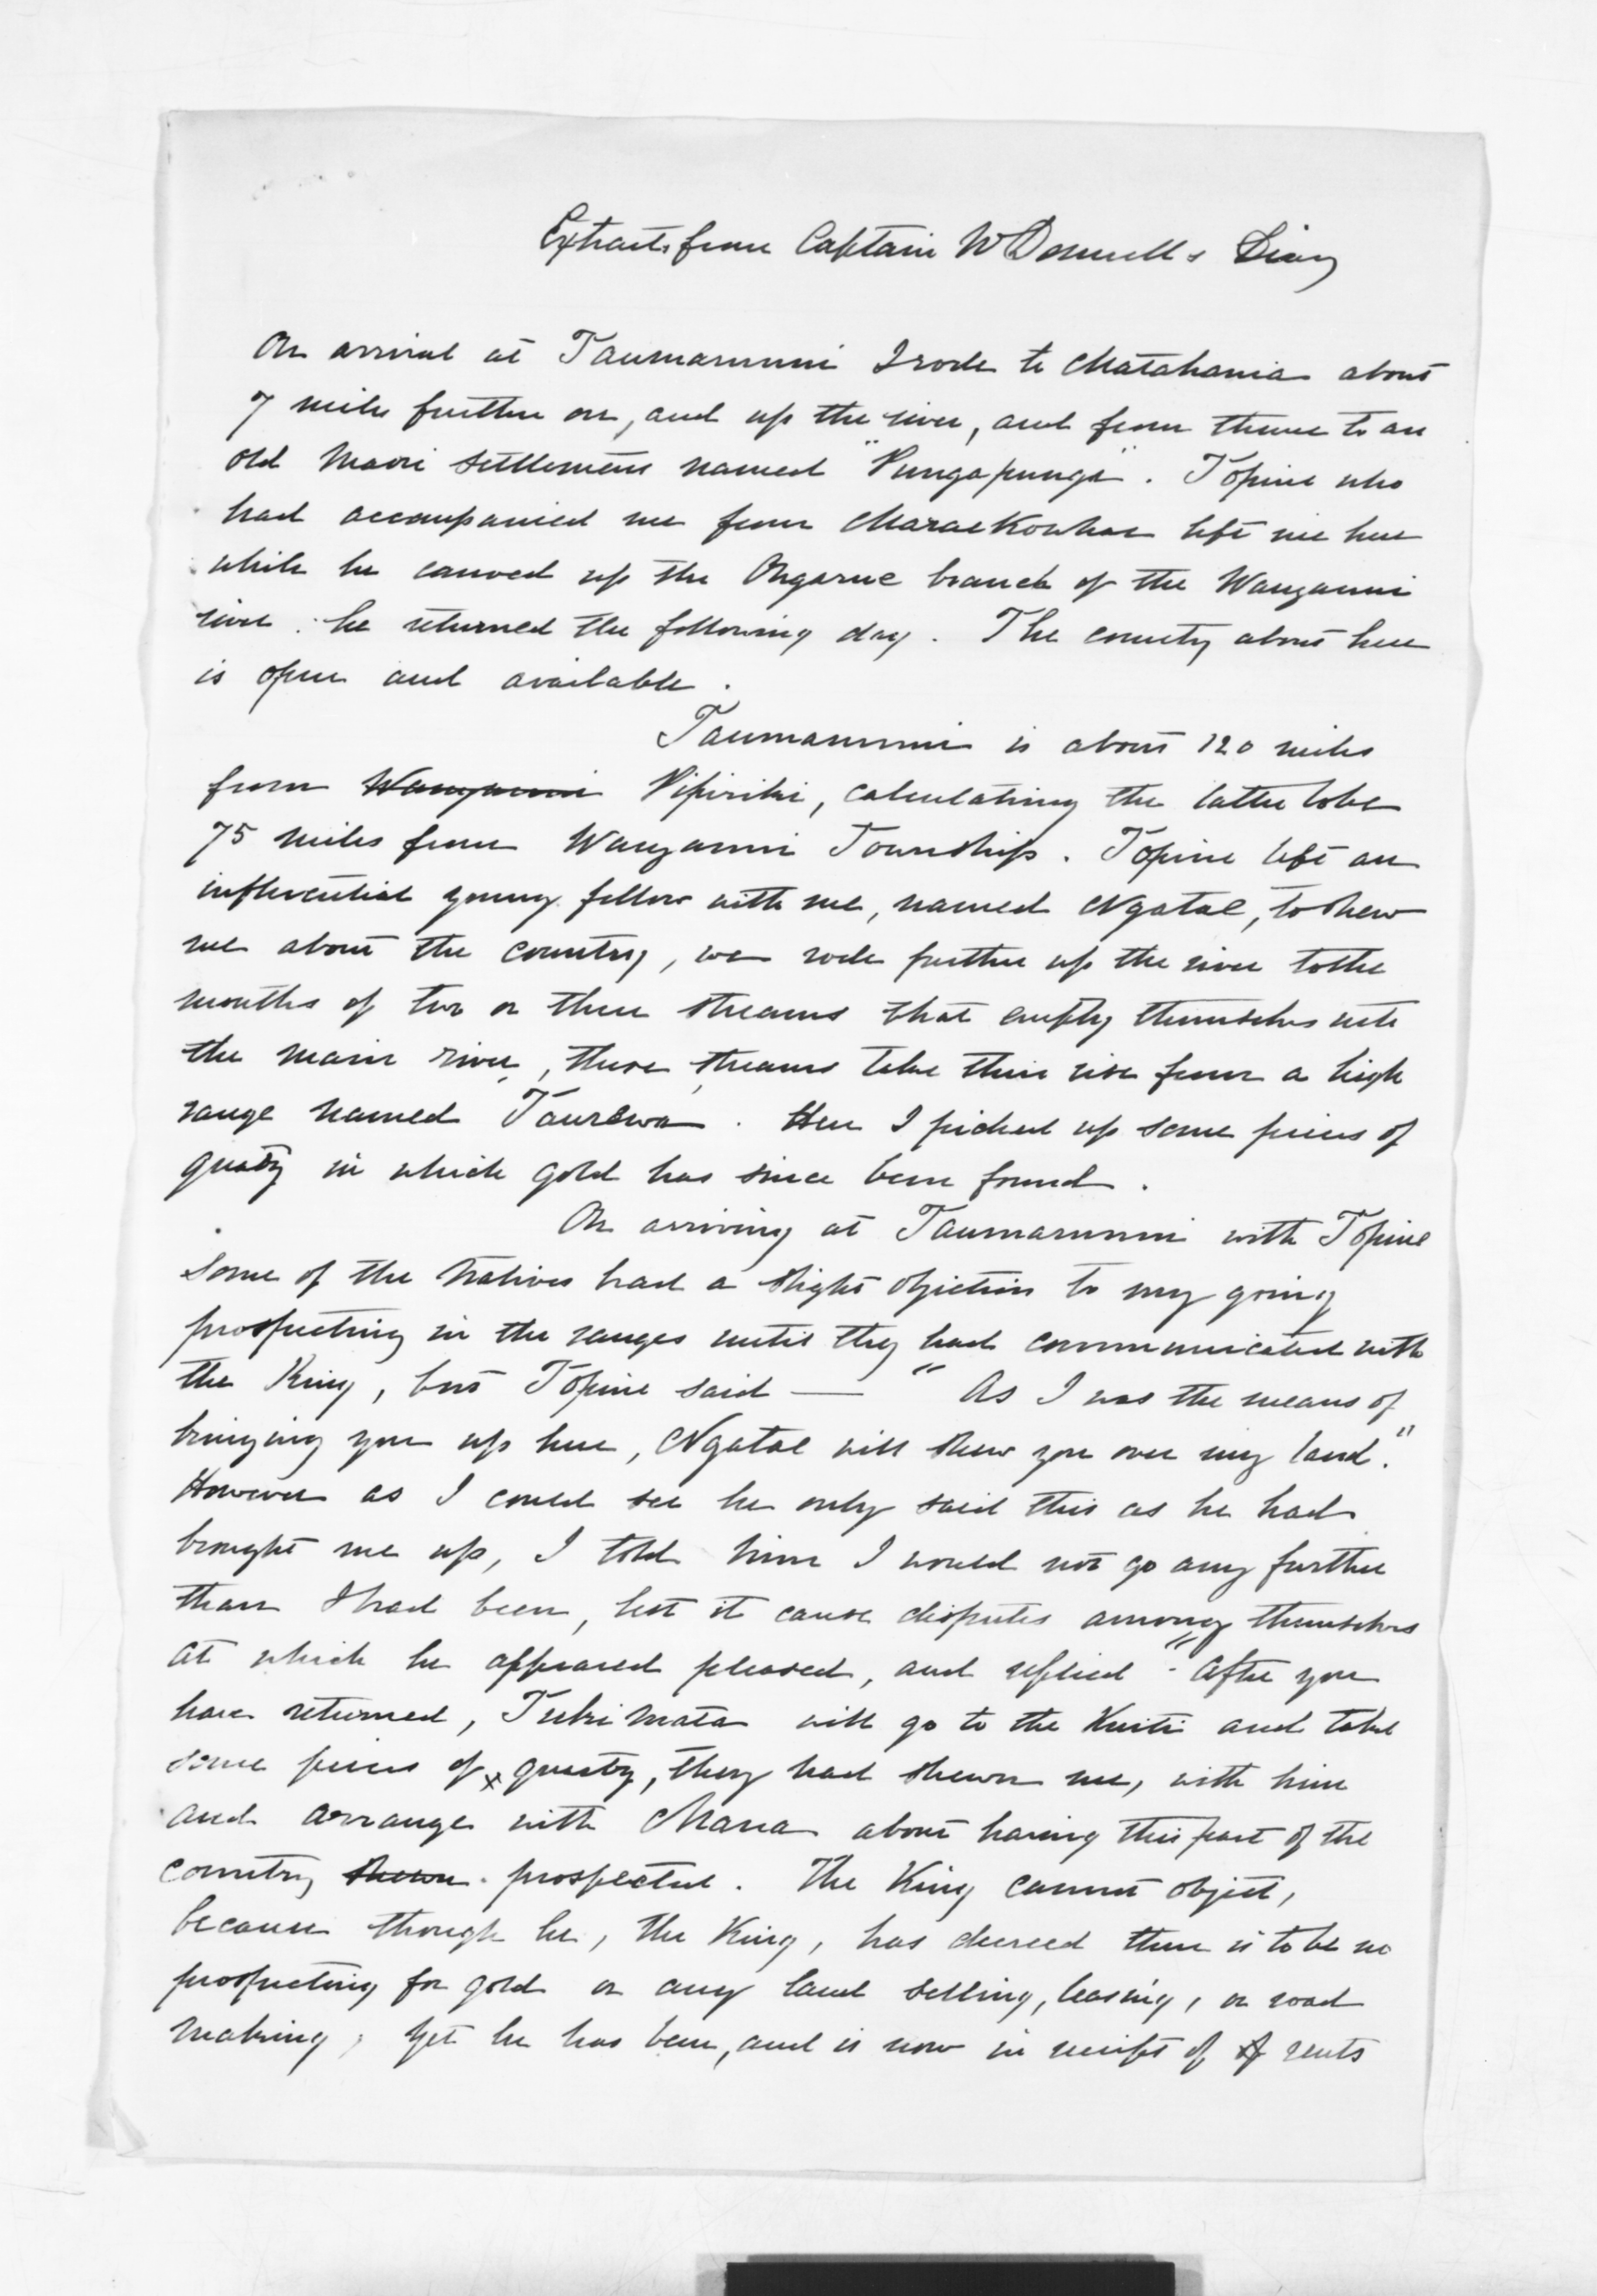 Extracts from Captain McDonnell's Diary
On arrival at Taumarunui I rode to Matahania about
7 miles further on, and up the river, and from thence to an
old Maori settlement named "Pungapunga". Topine who
had accompanied me from Maraekowhai left me here
while he canoed up the Ongarue branch of the Wanganui
river. he returned the following day. The country about here
is open and available.
Taumarunui is about 120 miles
from Wanganui Pipiriki, calculating the latter to be
75 miles from Wanganui Township. Topine left an
influential young fellow with me, named Ngatae, to shew
me about the country, we rode further up the river to the
mouths of two or three streams that empty themselves into
the main river, these streams take their rise from a high
range named Taurewa. Here I picked up some pieces of
quartz in which gold has since been found.
On arriving at Taumarunui with Topine
some of the Natives had a slight objection to my going
prospecting in the ranges until they had communicated with
the King, but Topine said — "As I was the means of
bringing you up here, Ngatae will shew you over my land."
However as I could see he only said this as he had
brought me up, I told him I would not go any further
than I had been, lest it cause disputes among themselves
at which he appeared pleased, and replied - "After you
have returned, Tuki Mata will go to the Kuiti and take
some pieces of x quartz, they had shewn me, with him
and arrange with Mana about having this part of the
country shewn. prospected. The King cannot object,
because though he, the King, has decreed there is to be no
prospecting for gold or any land selling, leasing, or road
making, yet he has been, and is now in receipt of of rents